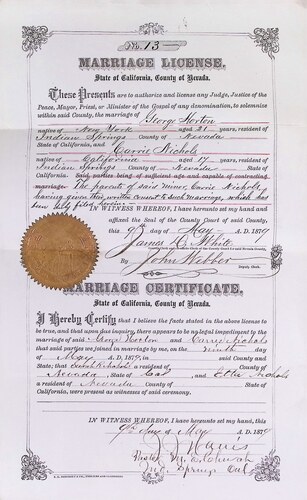 No. 13
MARRIAGE LICENSE.
State of California, County of Nevada.
These Presents are to authorize and license any Judge, Justice of the
Peace, Mayor, Priest, or Minister of the Gospel of any denomination, to solemnize
within said County, the marriage of George Horton
native of New York aged 31 years, resident of
Indian Springs County of Nevada
State of California, and Carrie Nichols
native of California aged 17 years, resident of
Indian Springs County of Nevada State of
California. Said parties being of sufficient age and capable of contracting
marriage. The parents of said minor, Carrie Nichols,
having given their written consent to such marriage, which has
been duly filed
IN WITNESS WHEREOF, I have hereunto set my hand and
affixed the Seal of the County Court of said County, this
9th day of May A. D. 1879
James D. White
By John Webber
Deputy Clerk.
MARRIAGE CERTIFICATE.
State of California, County of Nevada.
I Hereby Certify that I believe the facts stated in the above license to
be true, and that upon due inquiry, there appears to be no legal impediment to the
marriage of said George Horton and Carrie Nichols
that said parties were joined in marriage by me, on the Ninth day
of May A. D. 1879, in said County and
State; that Nichols a resident of
Nevada State of Cal and Etta Nichols
a resident of Nevada County of
were present as witnesses of said ceremony.
IN WITNESS WHEREOF, I have hereunto set my hand, this
9th day of May A. D. 1879
Harris
M. E. Church
Ind. Springs Cal